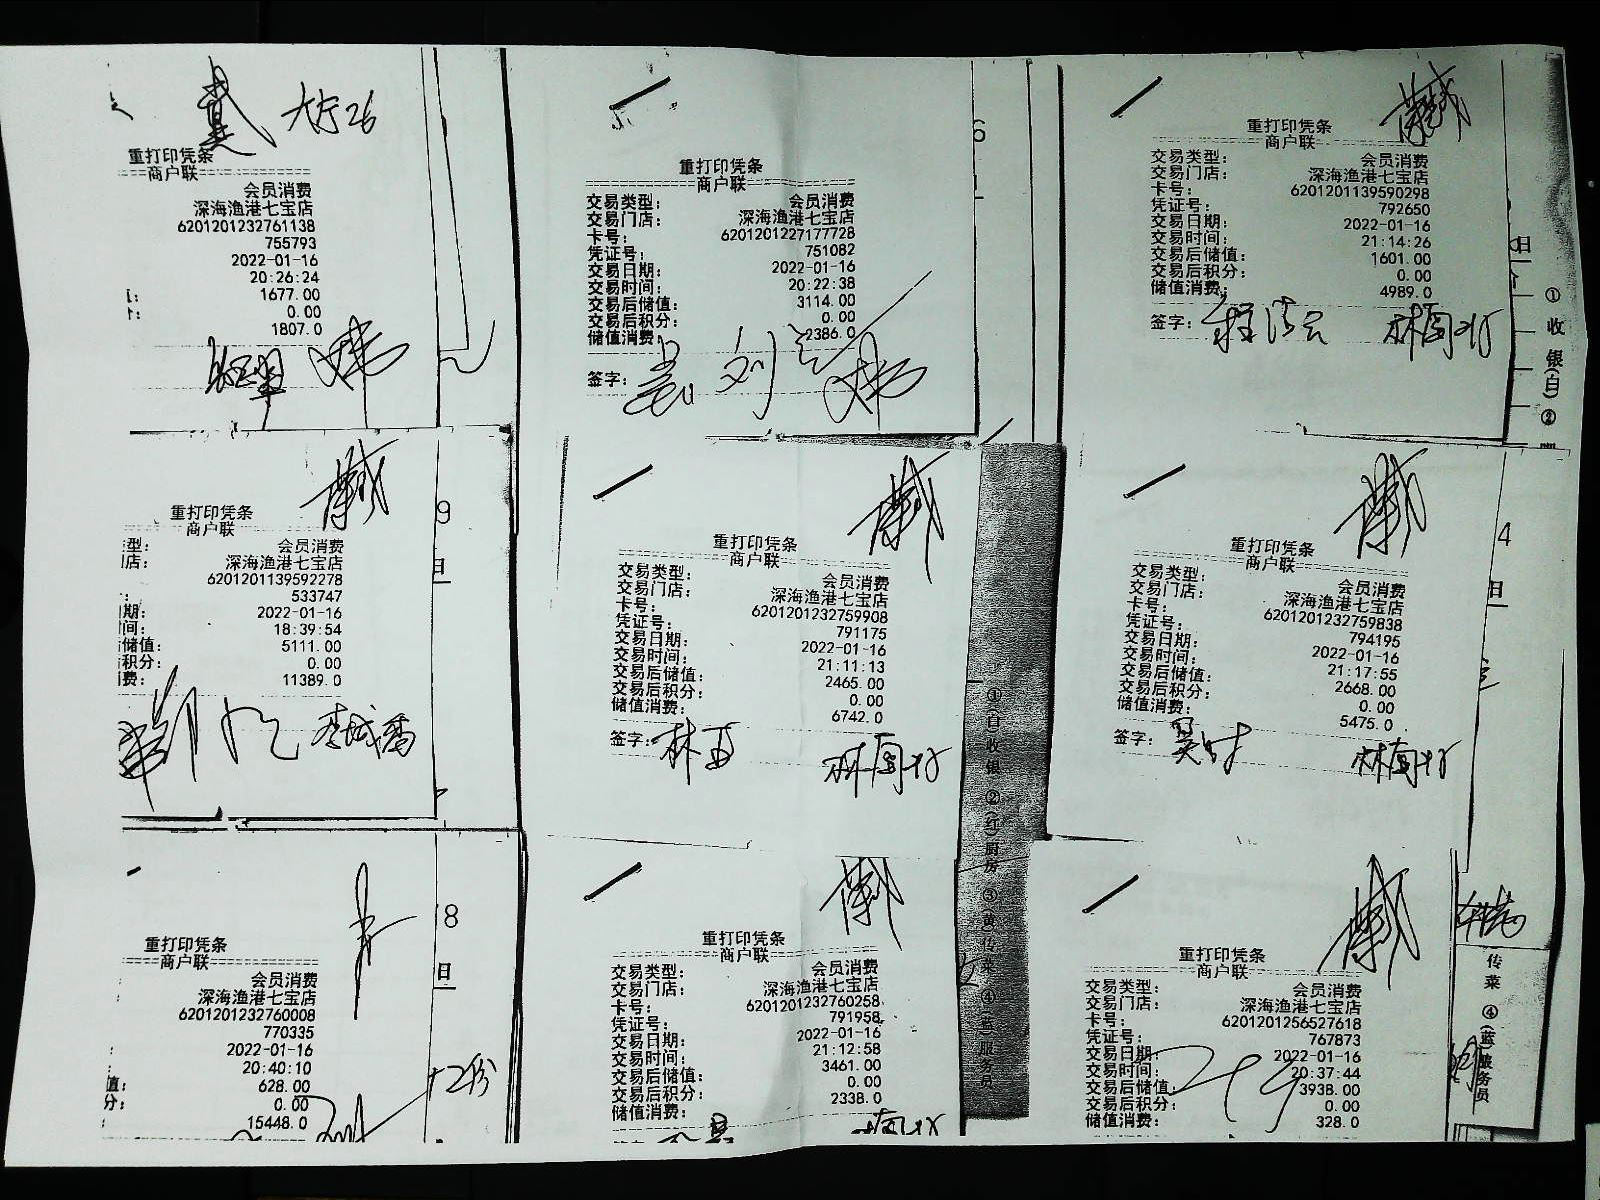 大厅26
重打印凭条
商户联
会员消费
深海渔港七宝店
6201201232761138
755793
2022-01-16
20:26:24
1677.00
0.00
1807.0
重打印凭条
商户联
交易类型: 会员消费
交易门店: 深海渔港七宝店
卡号: 6201201227177728
凭证号: 751082
交易日期: 2022-01-16
交易时间: 20:22:38
交易后储值: 3114.00
交易后积分: 0.00
储值消费: 2386.0
签字:
6
重打印凭条
商户联
交易类型: 会员消费
交易门店: 深海渔港七宝店
卡号: 6201201139590298
凭证号: 792650
交易日期: 2022-01-16
交易时间: 21:14:26
交易后储值: 1601.00
交易后积分: 0.00
储值消费: 4989.0
签字:
日
①收银(白)②
重打印凭条
商户联
型: 会员消费
店: 深海渔港七宝店
6201201139592278
: 533747
期: 2022-01-16
间: 18:39:54
储值: 5111.00
积分: 0.00
费: 11389.0
9
日
重打印凭条
商户联
交易类型: 会员消费
交易门店: 深海渔港七宝店
卡号: 6201201232759908
凭证号: 791175
交易日期: 2022-01-16
交易时间: 21:11:13
交易后储值: 2465.00
交易后积分: 0.00
储值消费: 6742.0
签字:
①(白)收银 ②(红)厨房 ③(黄)传菜 ④(蓝)服务员
重打印凭条
商户联
交易类型: 会员消费
交易门店: 深海渔港七宝店
卡号: 6201201232759838
凭证号: 794195
交易日期: 2022-01-16
交易时间: 21:17:55
交易后储值: 2668.00
交易后积分: 0.00
储值消费: 5475.0
签字:
4
日
重打印凭条
商户联
会员消费
深海渔港七宝店
6201201232760008
770335
2022-01-16
20:40:10
值: 628.00
分: 0.00
15448.0
8
日
重打印凭条
商户联
交易类型: 会员消费
交易门店: 深海渔港七宝店
卡号: 6201201232760258
凭证号: 791958
交易日期: 2022-01-16
交易时间: 21:12:58
交易后储值: 3461.00
交易后积分: 0.00
储值消费: 2338.0
重打印凭条
商户联
交易类型: 会员消费
交易门店: 深海渔港七宝店
卡号: 6201201256527618
凭证号: 767873
交易日期: 2022-01-16
交易时间: 20:37:44
交易后储值: 3938.00
交易后积分: 0.00
储值消费: 328.0
传菜 ④(蓝)服务员